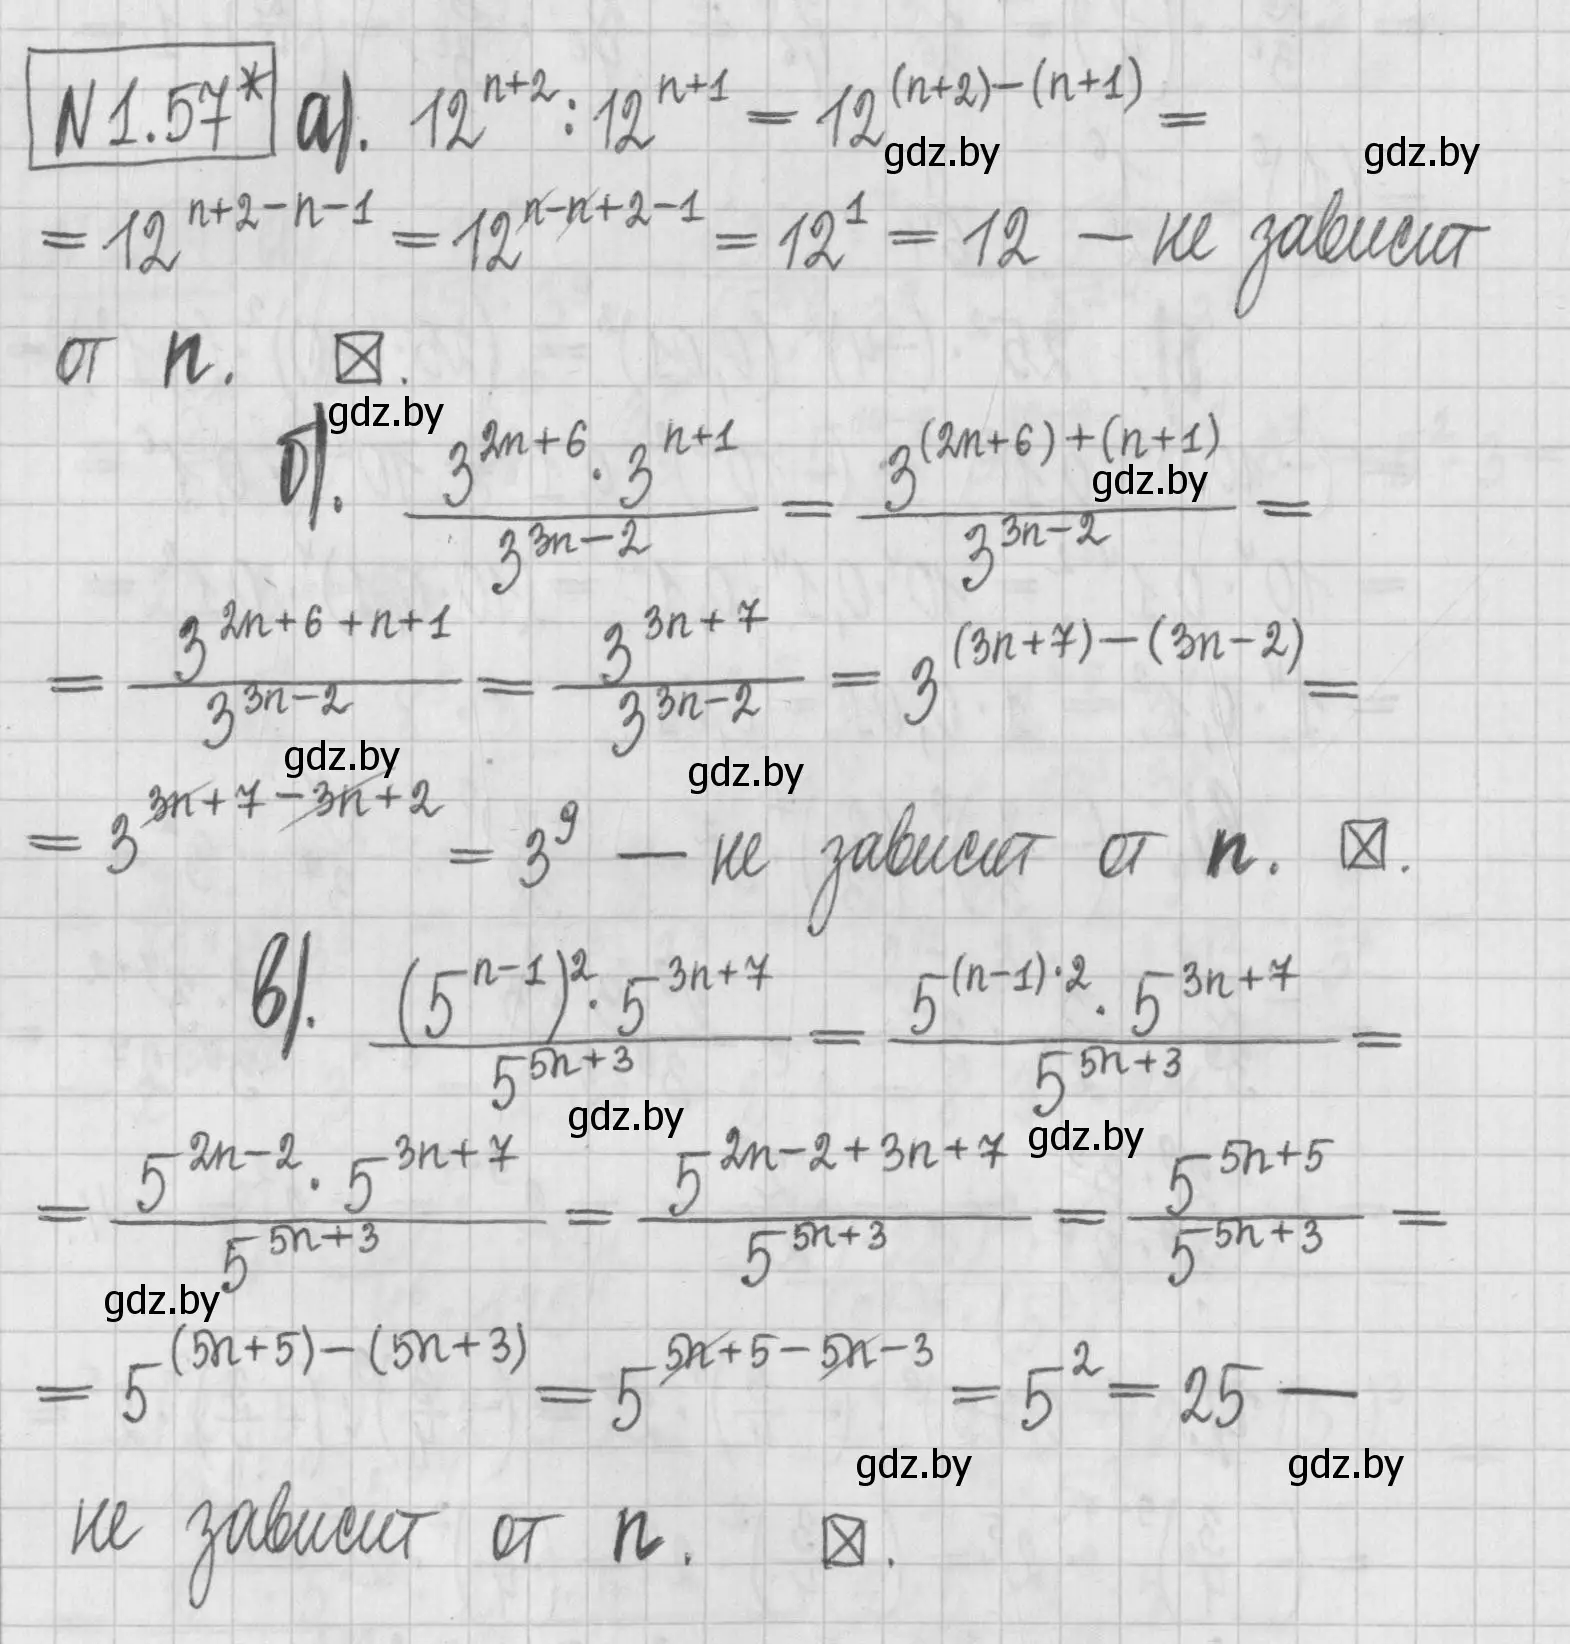 N 1.57* а). 12^{n+2} : 12^{n+1} = 12^{(n+2)-(n+1)} =
gdz.by gdz.by
= 12^{n+2-n-1} = 12^{n-n+2-1} = 12^1 = 12 — не зависит
от n. ☒.
gdz.by
б). \frac{3^{2n+6} · 3^{n+1}}{3^{3n-2}} = \frac{3^{(2n+6)+(n+1)}}{3^{3n-2}} =
gdz.by
= \frac{3^{2n+6+n+1}}{3^{3n-2}} = \frac{3^{3n+7}}{3^{3n-2}} = 3^{(3n+7)-(3n-2)} =
gdz.by gdz.by
= 3^{3n+7-3n+2} = 3^9 — не зависит от n. ☒.
в). \frac{(5^{n-1})^2 · 5^{3n+7}}{5^{5n+3}} = \frac{5^{(n-1)·2} · 5^{3n+7}}{5^{5n+3}} =
gdz.by gdz.by
= \frac{5^{2n-2} · 5^{3n+7}}{5^{5n+3}} = \frac{5^{2n-2+3n+7}}{5^{5n+3}} = \frac{5^{5n+5}}{5^{5n+3}} =
gdz.by
= 5^{(5n+5)-(5n+3)} = 5^{5n+5-5n-3} = 5^2 = 25 —
gdz.by gdz.by
не зависит от n. ☒.